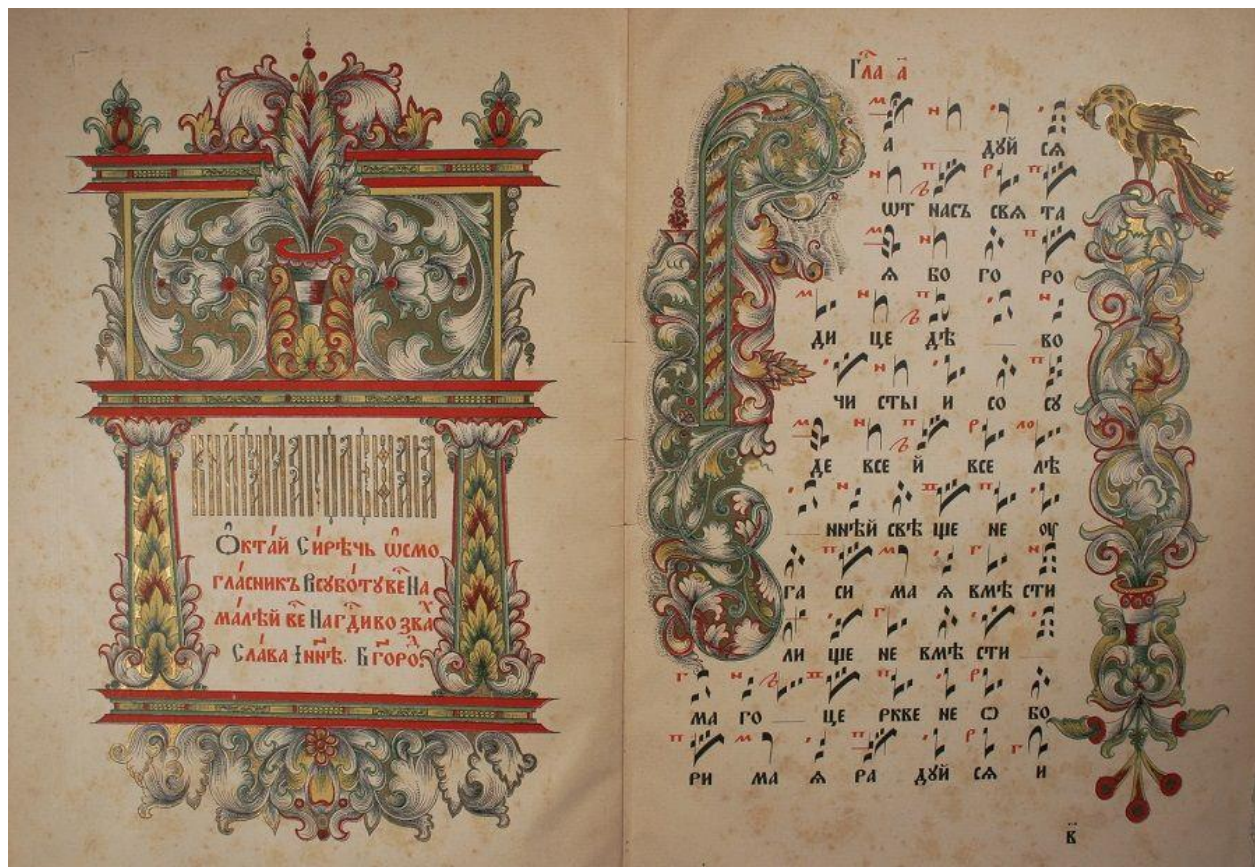 Ѻкта́й Си́рѣчь ѡ҆смо
гла́сникъ Всꙋбо́тꙋ ве҆ На
ма́лѣй ве҆ Нагд҃и во зва х
Сла́ва І҆ннѣ. Бг҃оро д
Гла а҃
а дꙋй сѧ
ѡт насъ свѧ та
ѧ бо го ро
ди це дѣ во
чи сты и со сꙋ
де все й все лѣ
ннѣй свѣ ще не ѹ
га си ма ѧ вмѣ сти
ли ще не вмѣ сти
ма го це ркве не ѻ бо
ри ма ѧ ра дꙋй сѧ и
в҃